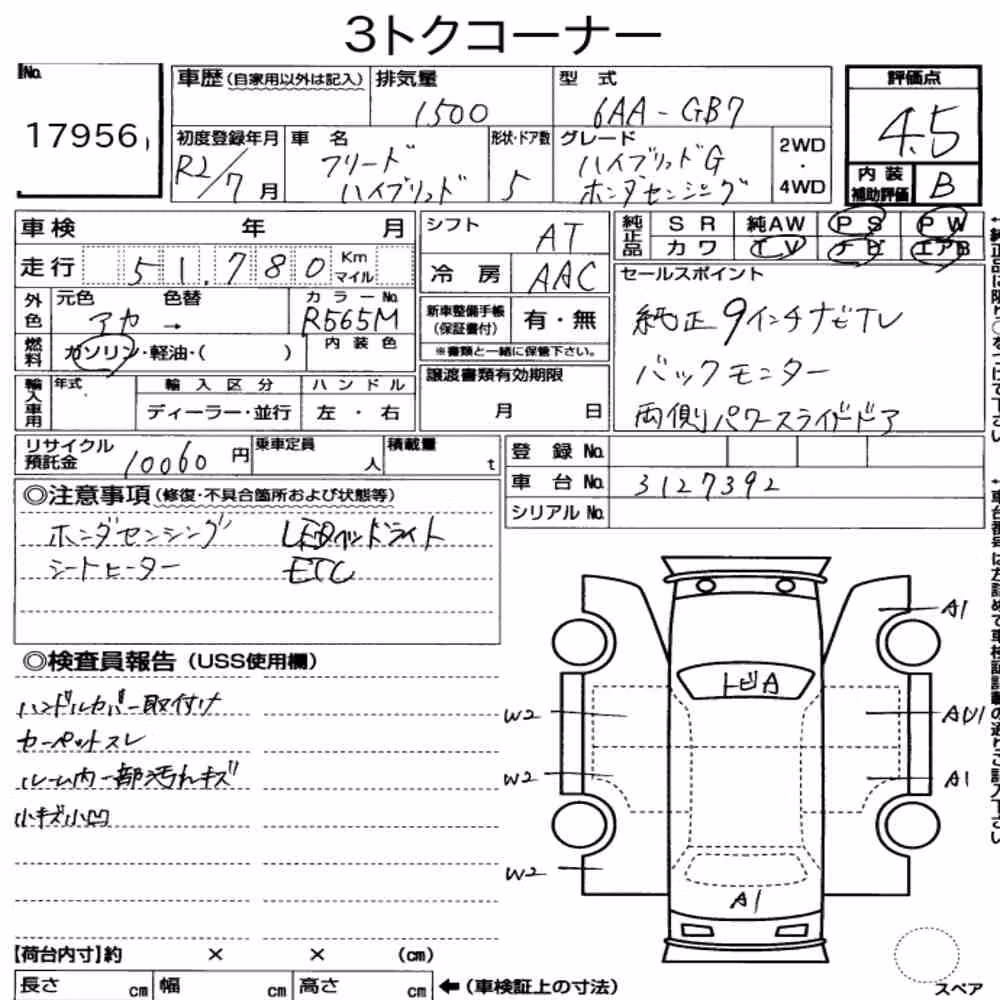 3トクコーナー
No.
17956
車歴(自家用以外は記入)
排気量
1500
型 式
6AA-GB7
評価点
4.5
初度登録年月
R2/7月
車 名
フリード
ハイブリッド
形状・ドア数
5
グレード
ハイブリッドG
ホンダセンシング
2WD
・
4WD
内装
補助評価
B
車検 年 月
走行 51,780 Km
マイル
シフト
AT
冷房
AAC
純正品
SR 純AW PS PW
カワ TV ナビ エアB
外色
元色 色替
アカ →
カラーNo.
R565M
燃料
ガソリン・軽油・( )
内装色
新車整備手帳
(保証書付)
有・無
※書類と一緒に保管下さい。
セールスポイント
純正9インチナビTV
バックモニター
両側パワースライドドア
輸入車用
年式
輸入区分
ディーラー・並行
ハンドル
左・右
譲渡書類有効期限
月 日
リサイクル
預託金
10060円
乗車定員
人
積載量
t
登録No.
車台No.
3127392
シリアルNo.
◎注意事項(修復・不具合箇所および状態等)
ホンダセンシング LEDヘッドライト
シートヒーター ETC
◎検査員報告(USS使用欄)
ハンドルカバー取付け
カーペットスレ
ルーム内一部汚れキズ
小キズ小凹
A1
トビA
W2
AU1
W2
A1
W2
A1
【荷台内寸】約 × × (cm)
長さ cm
幅 cm
高さ cm
←(車検証上の寸法)
スペア
←純正品に限り○をつけて下さい
←車台番号は左詰めで車検証記載の通りご記入下さい